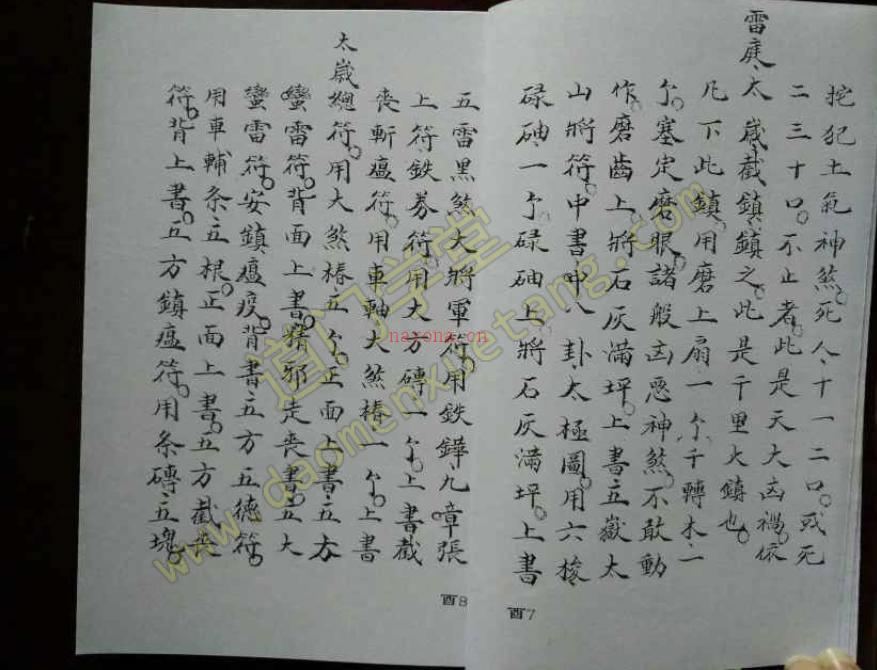 挖犯土氣神煞死人十一二口。或死
二三十口。不止者此是天大凶禍。依
雷庭太歲截鎮鎮之。此是千里大鎮也。
凡下此鎮。用磨上扇一个。千轉木二
个。塞定磨眼。諸般凶惡神煞。不敢動
作。磨齒上將石灰滿坪。上書五嶽太
山將符。中書中八卦太極圖。用六棱
碌砷一个。碌砷上將石灰滿坪。上書
酉7
五雷黑煞大將軍符。用鉄鏵九章張
上符鉄券符。用大方磚一个。上書截
喪斬瘟符。用車軸大煞樁一个。上書
太歲總符。用大煞樁五个。正面上書五方
蠻雷符。背面上書精邪走喪。書五大
蠻雷符。安鎮瘟疫。背書五方五德符。
用車輔条五根。正面上書五方截喪
符。背上書五方鎮瘟符。用条磚五塊。
酉8
道门学堂
www.daomenxuetang.com
nayona.cn